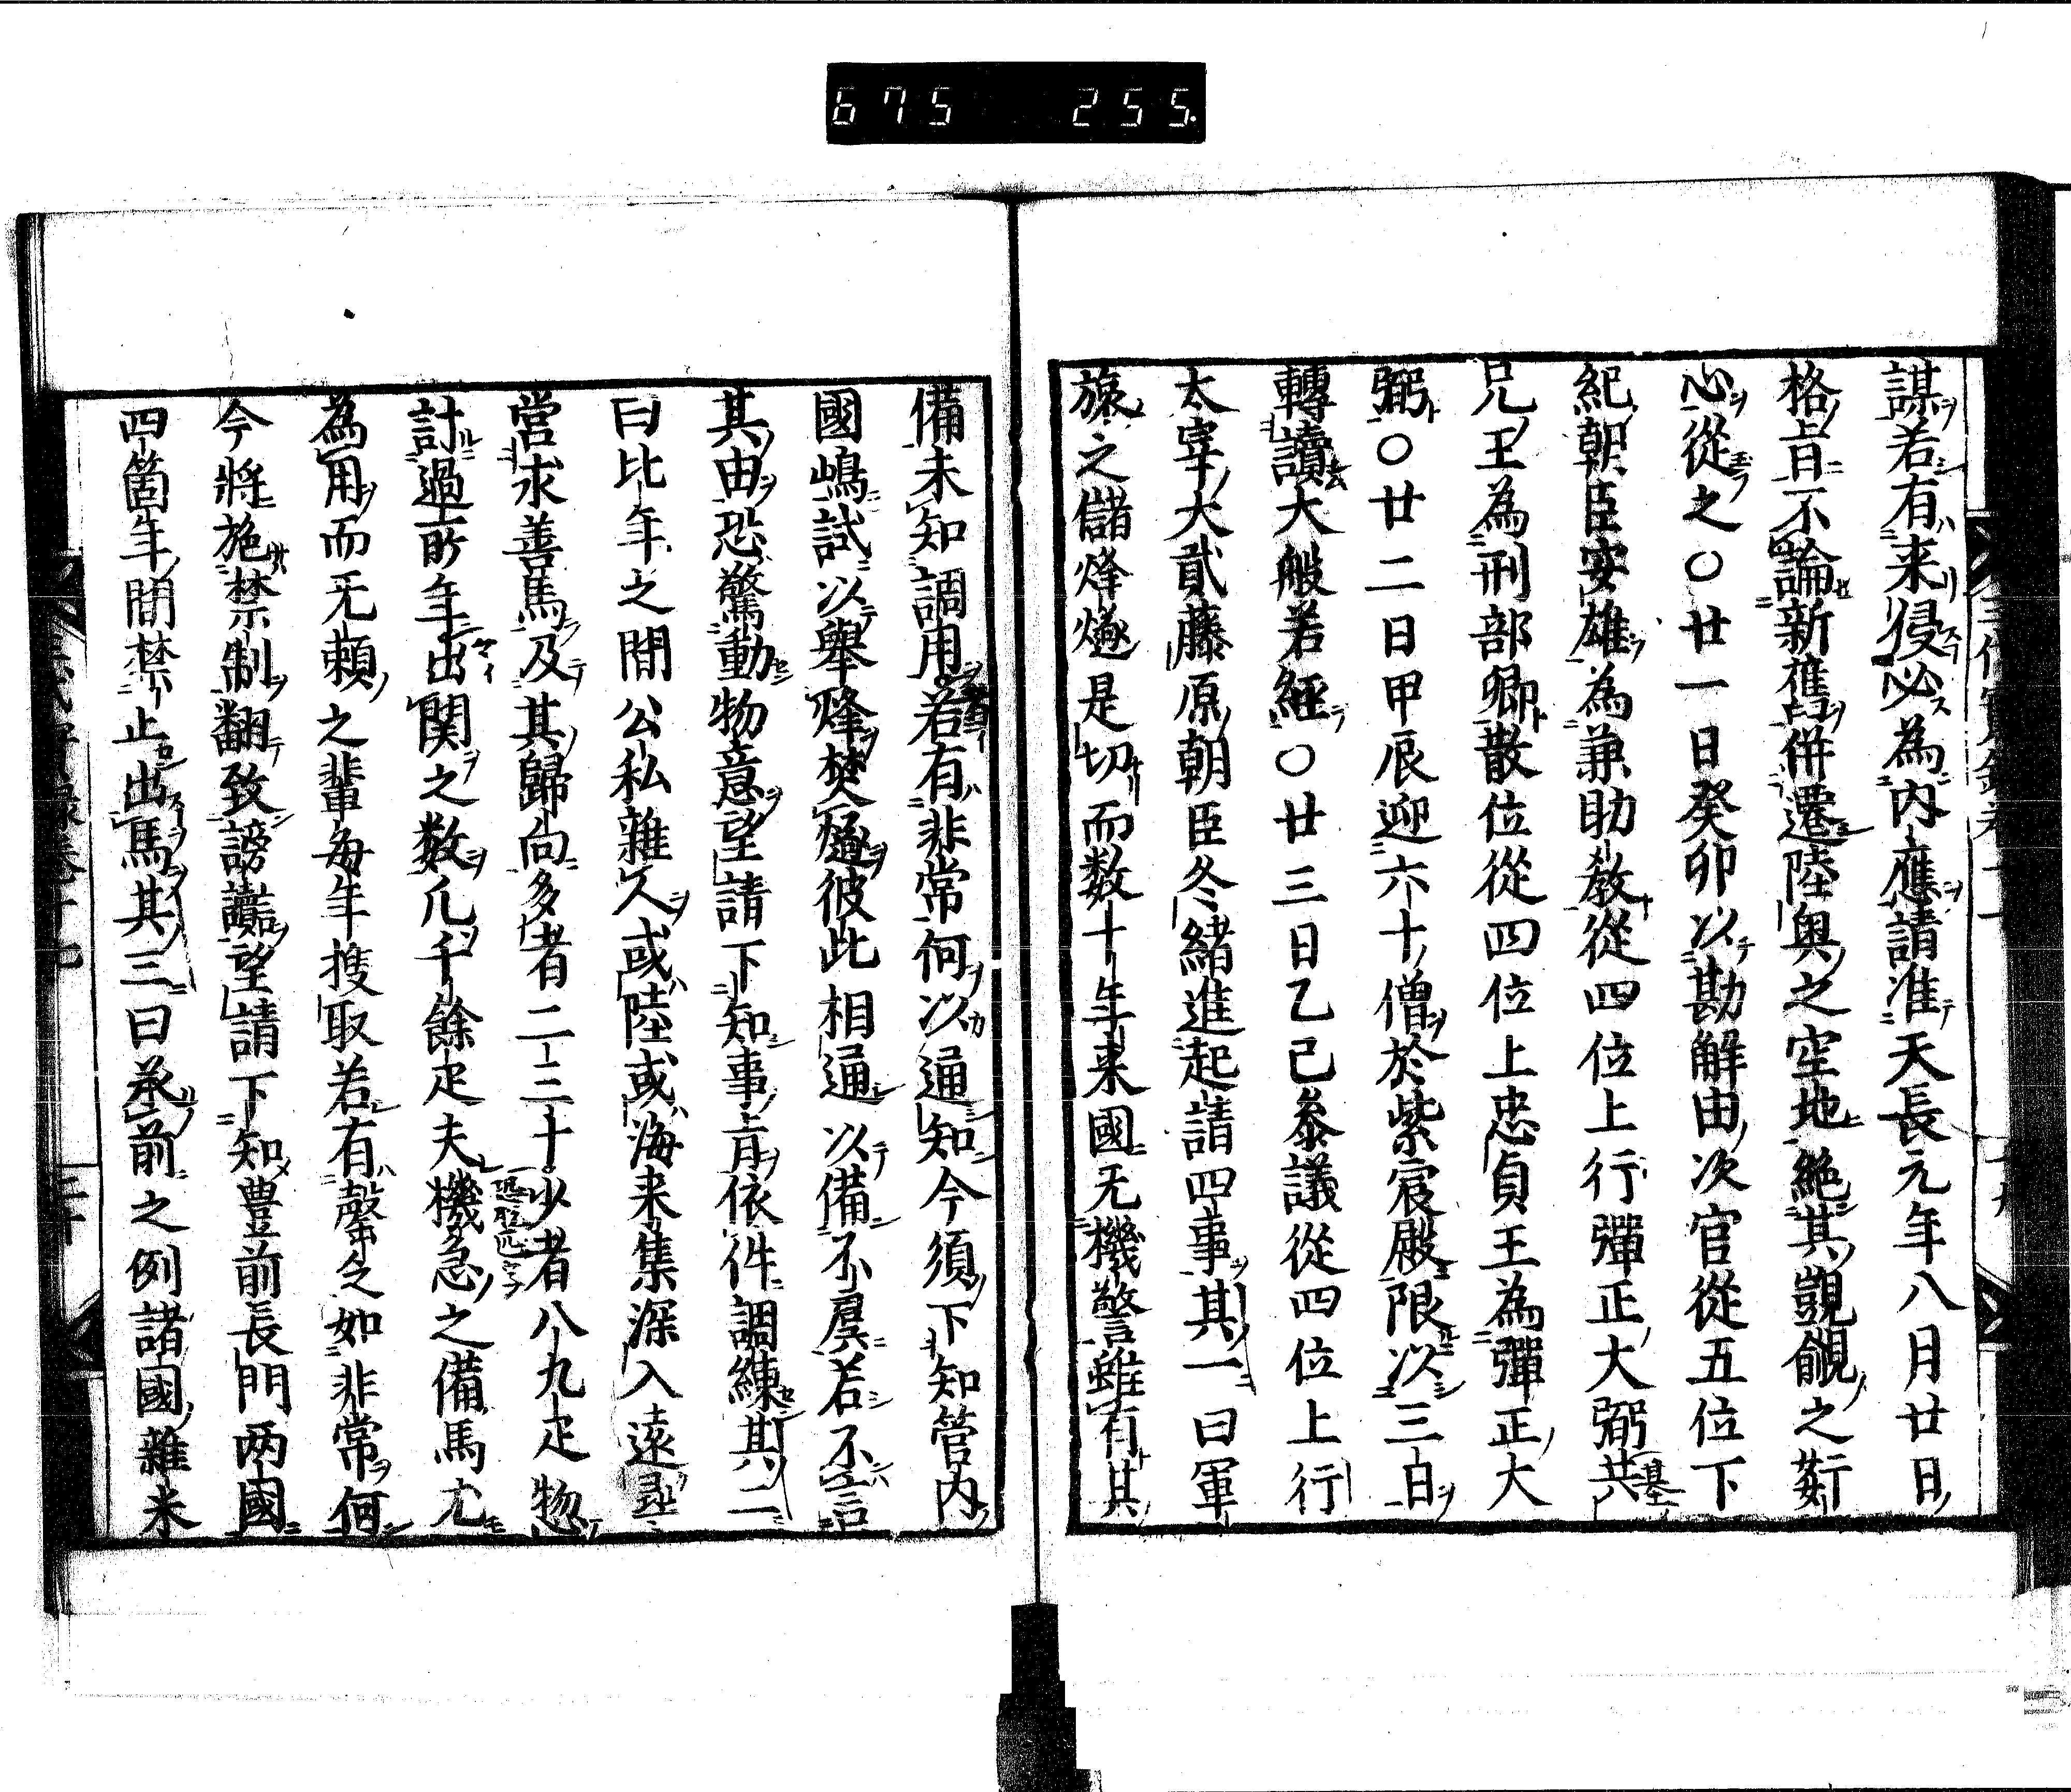 675 255.
謀若有来侵必為内應請准天長元年八月廿日
格旨不論新舊併遷陸奥之空地絶其覬覦之姧
心從之○廿一日癸卯以勘解由次官從五位下
紀朝臣安雄為兼助教從四位上行彈正大弼共
兄王為刑部卿散位從四位上忠貞王為彈正大
弼○廿二日甲辰迎六十僧於紫宸殿限以三日
轉讀大般若經○廿三日乙巳叅議從四位上行
太宰大貳藤原朝臣冬緒進起請四事其一曰軍
旅之儲烽燧是切而数十年来國无機警雖有其
備未知調用若有非常何以通知今須下知管内
國嶋試以舉烽焚燧彼此相通以備不虞若不言
其由恐驚動物意望請下知事旨依件調練其二
曰比年之間公私雜人或陸或海来集深入遠尋
営求善馬及其歸向多者二三十少者八九疋惣
計過所年出関之数凡千餘疋夫機急之備馬尤
為用而无頼之輩毎年搜取若有罄乏如非常何
今將施禁制翻致謗讟望請下知豊前長門两國
四箇年間禁止出馬其三曰承前之例諸國雜米